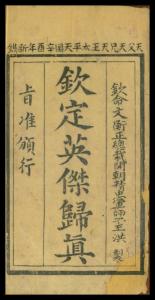 天父天兄天王太平天國辛酉年新鐫
欽命文衡正總裁開朝精忠軍師干王洪 製
欽定英傑歸真
旨准頒行